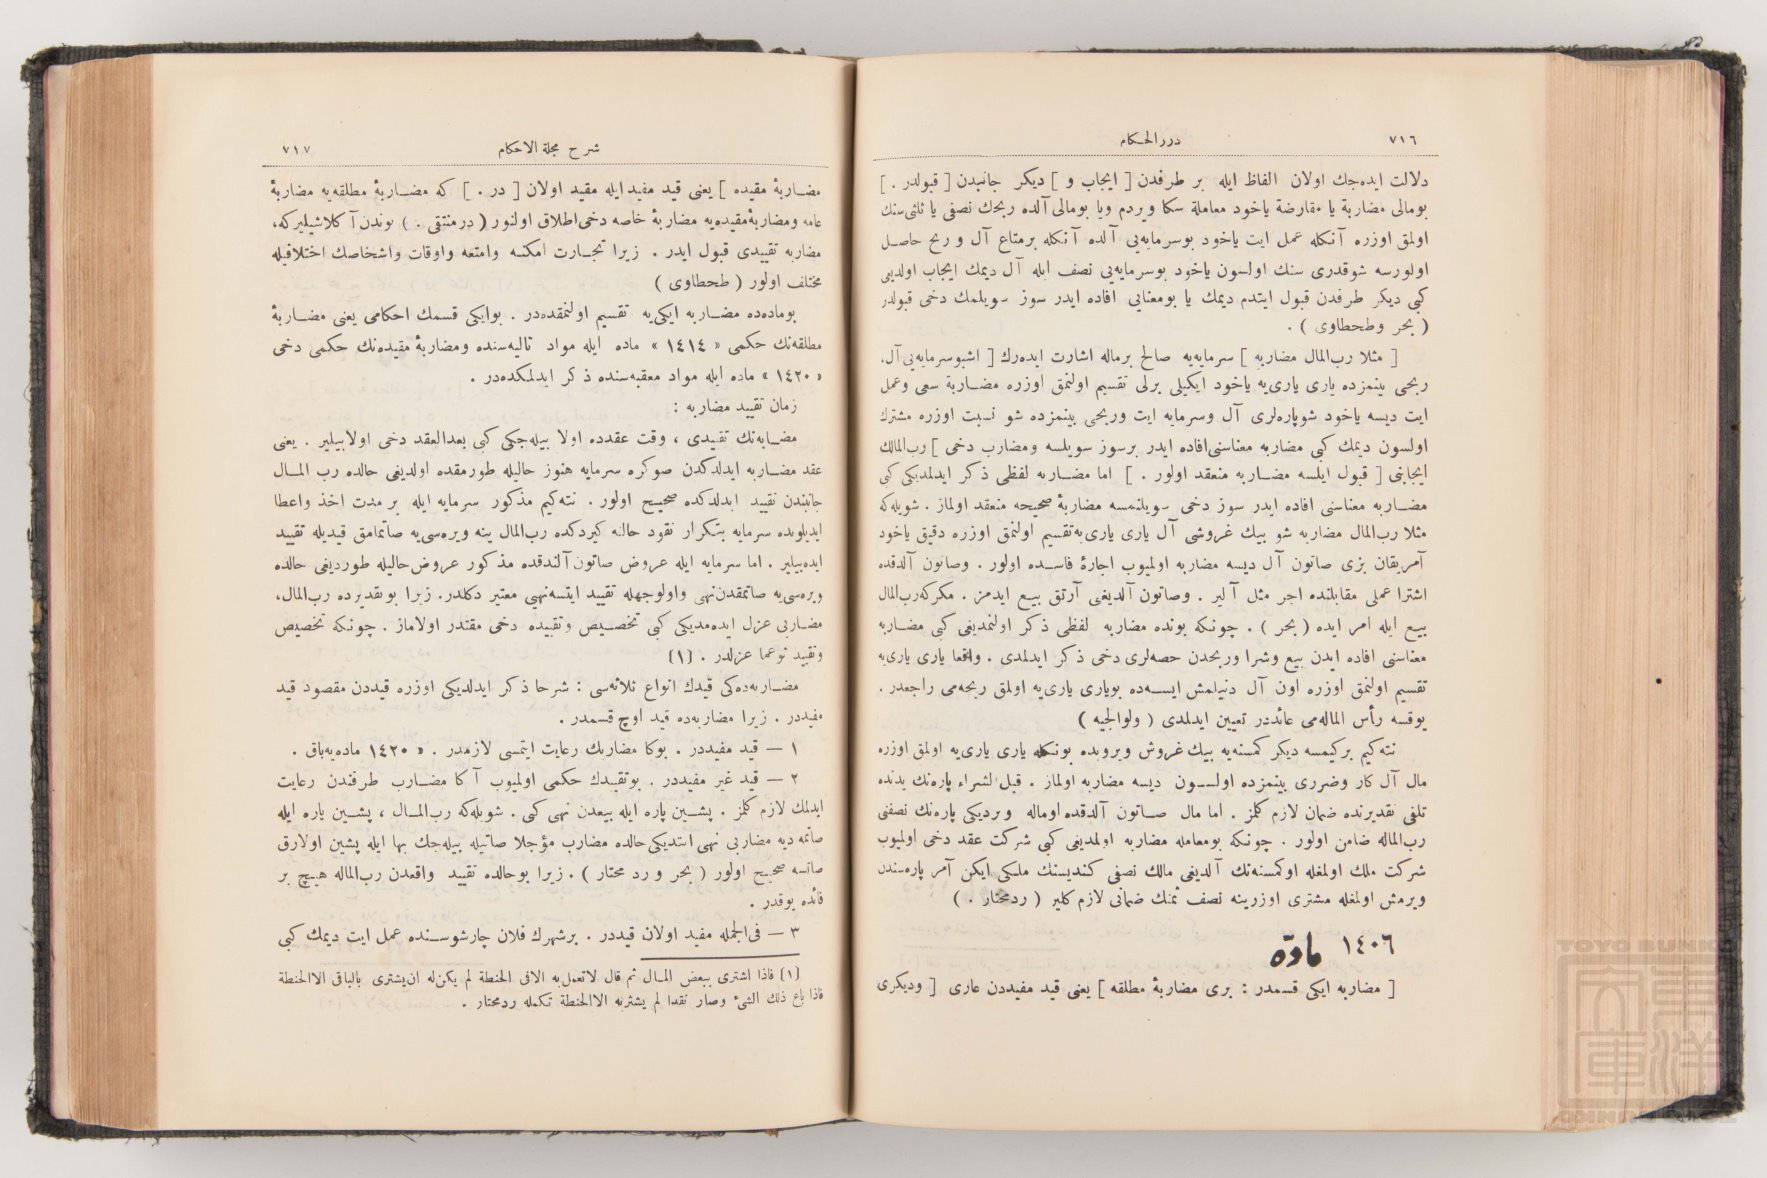 ٧١٦
دررالحكام
دلالت ايده‌جك اولان الفاظ ايله بر طرفدن [ ايجاب و ] ديكر جانبدن [ قبولدر . ]
بومالى مضاربة يا مقارضة ياخود معاملة سكا ويردم ويا بومالى آلده ربحك نصفى يا ثلثى سنك
اولمق اوزره آنكله عمل ايت ياخود بوسرمايه‌يى آلده آنكله برمتاع آل و ربح حاصل
اولورسه شوقدرى سنك اولسون ياخود بوسرمايه‌يى نصف ايله آل ديمك ايجاب اولديغى
كبى ديكر طرفدن قبول ايتدم ديمك يا بومعنايى افاده ايدر سوز سويلمك دخى قبولدر
( بحر وطحطاوى ) .
[ مثلا رب‌المال مضاربه ] سرمايه‌يه صالح برماله اشارت ايده‌رك [ اشبوسرمايه‌يى آل،
ربحى بينمزده يارى يارى‌يه ياخود ايكيلى برلى تقسيم اولنمق اوزره مضاربة سعى وعمل
ايت ديسه ياخود شوپاره‌لرى آل وسرمايه ايت وربحى بينمزده شو نسبت اوزره مشترك
اولسون ديمك كبى مضاربه معناسنى‌افاده ايدر برسوز سويلسه ومضارب دخى ] رب‌المالك
ايجابنى [ قبول ايلسه مضاربه منعقد اولور . ] اما مضاربه لفظى ذكر ايدلمديكى كبى
مضاربه معناسنى افاده ايدر سوز دخى سويلنمسه مضاربهٔ صحيحه منعقد اولماز . شويله‌كه
مثلا رب‌المال مضاربه شو بيك غروشى آل يارى يارى‌يه‌تقسيم اولنمق اوزره دقيق ياخود
آمريقان بزى صاتون آل ديسه مضاربه اولميوب اجارهٔ فاسده اولور . وصاتون آلدقده
اشترا عملى مقابلنده اجر مثل آلير . وصاتون آلديغى آرتق بيع ايدمز . مكركه‌رب‌المال
بيع ايله امر ايده ( بحر ) . چونكه بونده مضاربه لفظى ذكر اولنمديغى كبى مضاربه
معناسنى افاده ايدن بيع وشرا وربحدن حصه‌لرى دخى ذكر ايدلمدى . واقعا يارى يارى‌يه
تقسيم اولنمق اوزره اون آل دنيلمش ايسه‌ده بويارى يارى‌يه اولمق ربحه‌مى راجعدر .
يوقسه رأس الماله‌مى عائددر تعيين ايدلمدى ( ولوالجيه )
نته‌كيم بركيمسه ديكر كمسنه‌يه بيك غروش ويروبده بونكله يارى يارى‌يه اولمق اوزره
مال آل كار وضررى بينمزده اولسون ديسه مضاربه اولماز . قبل لشراء پاره‌نك يدنده
تلفى تقديرنده ضمان لازم كلمز . اما مال صاتون آلدقده اوماله ويرديكى پاره‌نك نصفنى
رب‌الماله ضامن اولور . چونكه بومعامله مضاربه اولمديغى كبى شركت عقد دخى اولميوب
شركت ملك اولمغله اوكمسنه‌نك آلديغى مالك نصفى كنديسنك ملكى ايكن آمر پاره‌سندن
ويرمش اولمغله مشترى اوزرينه نصف ثمنك ضمانى لازم كلير ( ردمحتار . )
١٤٠٦ مادّه
[ مضاربه ايكى قسمدر : برى مضاربهٔ مطلقه ] يعنى قيد مفيددن عارى [ وديكرى
شرح مجلة الاحكام
٧١٧
مضاربهٔ مقيده ] يعنى قيد مفيدايله مقيد اولان [ در . ] كه مضاربهٔ مطلقه‌يه مضاربهٔ
عامه ومضاربهٔ‌مقيده‌يه مضاربهٔ خاصه دخى‌اطلاق اولنور ( درمنتقى . ) بوندن‌آكلاشيليركه،
مضاربه تقييدى قبول ايدر . زيرا تجارت امكنه وامتعه واوقات واشخاصك اختلافيله
مختلف اولور ( طحطاوى )
بوماده‌ده مضاربه ايكى‌يه تقسيم اولنمقده‌در . بوايكى قسمك احكامى يعنى مضاربهٔ
مطلقه‌نك حكمى « ١٤١٤ » ماده ايله مواد تاليه‌سنده ومضاربهٔ مقيده‌نك حكمى دخى
« ١٤٢٠ » ماده ايله مواد معقبه‌سنده ذكر ايدلمكده‌در .
زمان تقييد مضاربه :
مضابه‌نك تقييدى ، وقت عقدده اولا بيله‌جكى كبى بعدالعقد دخى اولابيلير . يعنى
عقد مضاربه ايدلدكدن صوكره سرمايه هنوز حاليله طورمقده اولديغى حالده رب المال
جانبندن تقييد ايدلدكده صحيح اولور . نته‌كيم مذكور سرمايه ايله بر مدت اخذ واعطا
ايديلوبده سرمايه بتكرار نقود حالنه كيردكده رب‌المال ينه ويره‌سى‌يه صاتمامق قيديله تقييد
ايده‌بيلير . اما سرمايه ايله عروض صاتون‌آلندقده مذكور عروض‌حاليله طورديغى حالده
ويره‌سى‌يه صاتمقدن‌نهى واولوجهله تقييد ايتسه‌نهيى معتبر دكلدر . زيرا بوتقديرده رب‌المال،
مضاربى عزل ايده‌مديكى كبى تخصيص وتقييده دخى مقتدر اولاماز . چونكه تخصيص
وتقييد نوعما عزلدر . (١)
مضاربه‌ده‌كى قيدك انواع ثلاثه‌سى : شرحا ذكر ايدلديكى اوزره قيددن مقصود قيد
مفيددر . زيرا مضاربه‌ده قيد اوچ قسمدر .
١ — قيد مفيددر . بوكا مضاربك رعايت ايتمسى لازمدر . « ١٤٢٠ ماده‌يه‌باق .
٢ — قيد غير مفيددر . بوتقييدك حكمى اولميوب آكا مضارب طرفندن رعايت
ايدلمك لازم كلمز . پشين پاره ايله بيعدن نهى كبى . شويله‌كه رب‌المال ، پشين پاره ايله
صاتمه ديه مضاربى نهى ايتديكى‌حالده مضارب مؤجلا صاتيله بيله‌جك بها ايله پشين اولارق
صاتسه صحيح اولور ( بحر و رد محتار ) . زيرا بوحالده تقييد واقعدن رب‌الماله هيچ بر
فائده يوقدر .
٣ — فى‌الجمله مفيد اولان قيددر . برشهرك فلان چارشوسنده عمل ايت ديمك كبى
(١) فاذا اشترى ببعض المال ثم قال لاتعمل‌به الافى الحنطة لم يكن‌له ان‌يشترى بالباقى الاالحنطة
فاذا باع ذلك الشئ وصار نقدا لم يشتربه الاالحنطة تكمله ردمحتار .
TOYO BUNKO